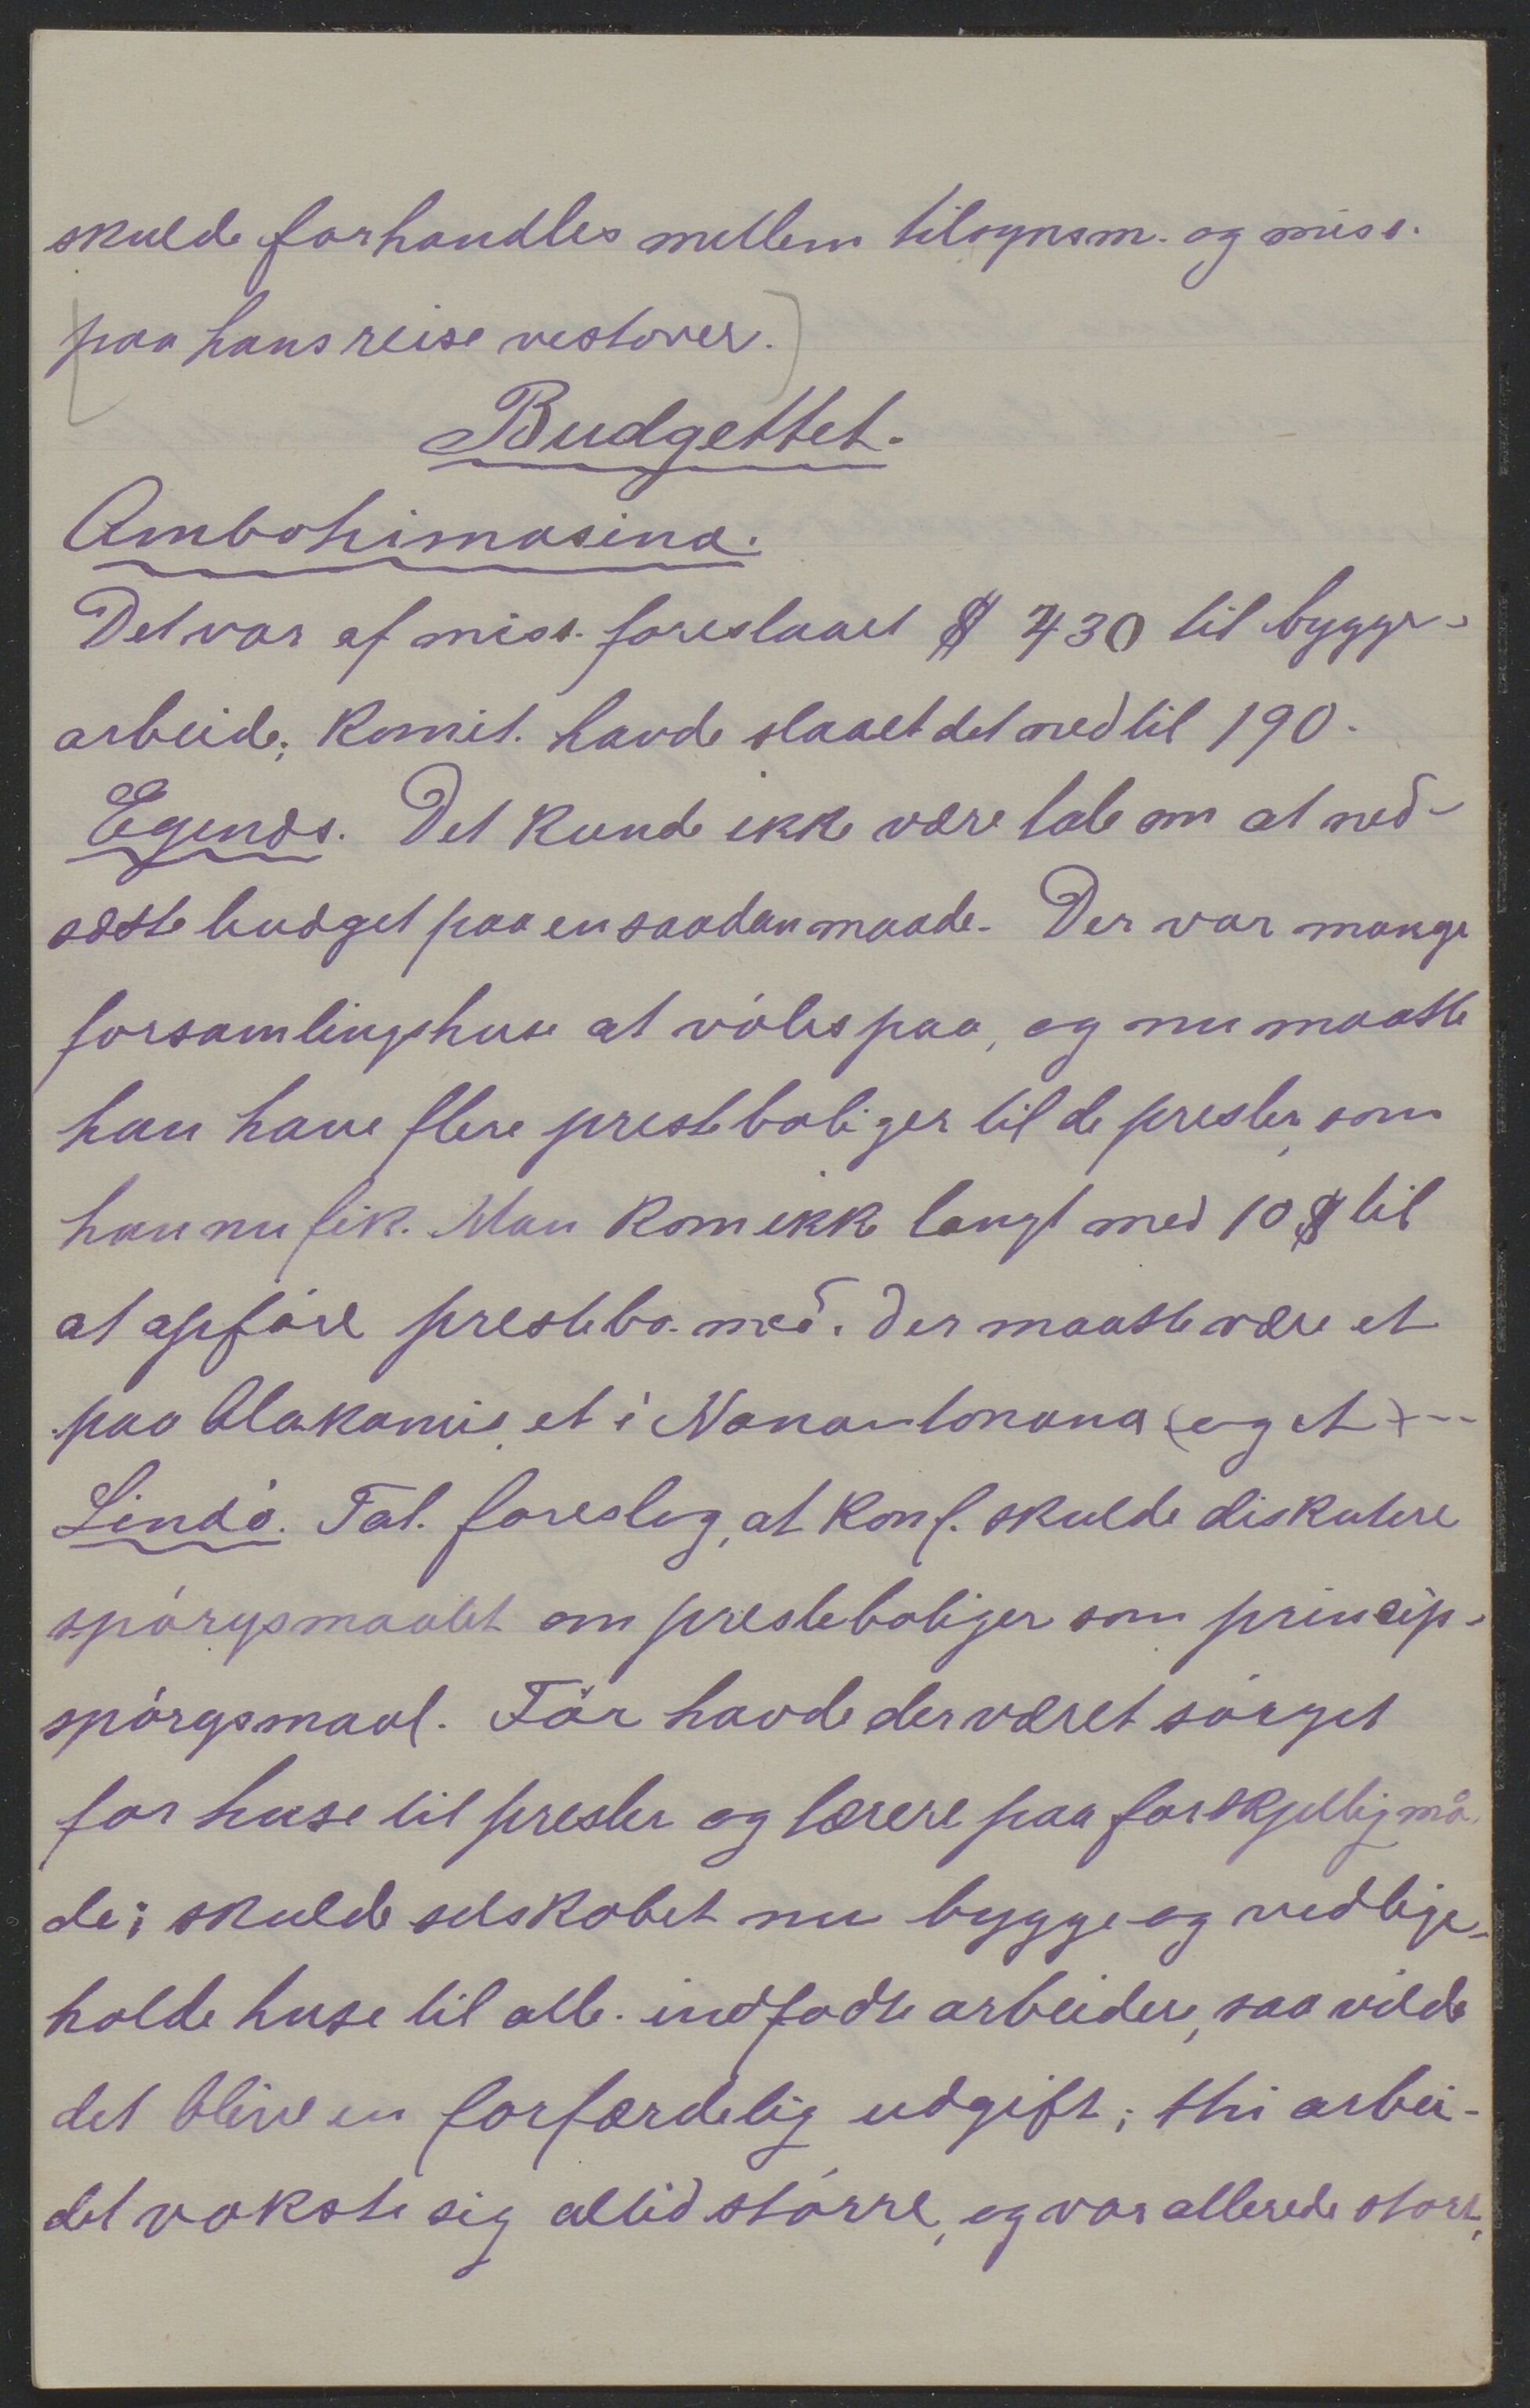 skulde forhandles mellem tilsynsm. og miss.
(paa hans reise vestover.)
Budgettet.
Ambohimasina.
Det var af miss. foreslaaet $ 430 til bygge-
arbeide; Komit. havde slaaet det ned til 190.
Egenæs. Det kunde ikke være tale om at ned-
sætte budget paa en saadan maade. Der var mange
forsamlingshuse at vøles paa, og nu maatte
han have flere presteboliger til de prester, som
han nu fik. Man kom ikke langt med 10 $ til
at opføre prestebo. med. Der maatte være et
paa Alakamis, et i Manantonana (og et) --
Lindø. Tal. foreslog, at Konf. skulde diskutere
spørgsmaalet om presteboliger som princip-
spørgsmaal. Før havde der været sørget
for huse til prester og lærere paa forskjellig må-
de; skulde selskabet nu bygge og vedlige-
holde huse til alle indfødte arbeidere, saa vilde
det blive en forfærdelig udgift; thi arbei-
det vokste sig altid større, og var allerede stort,